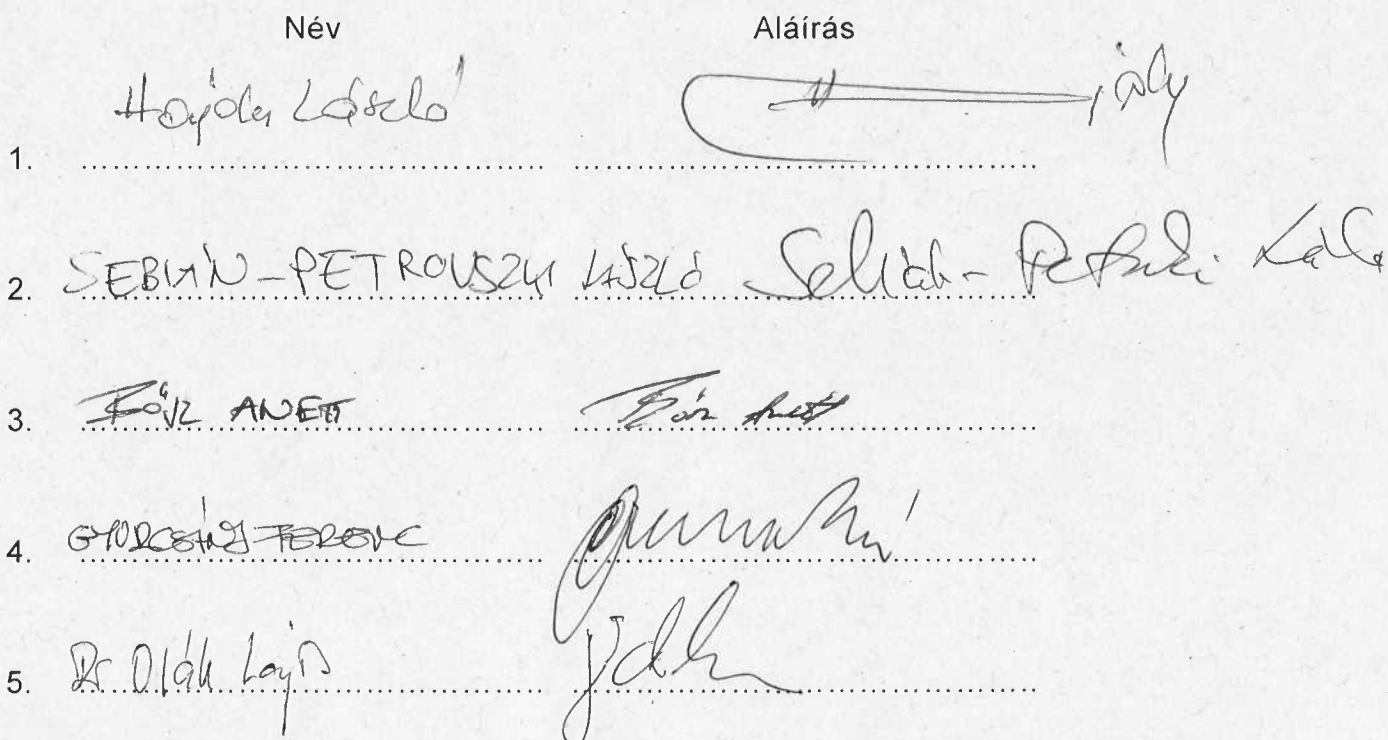 Név Aláírás
1. Hajdu László
2. SEBIÁN-PETROVSZKI LÁSZLÓ Sebián-Petrovszki László
3. BŐSZ ANETT Bősz Anett
4. GYURCSÁNY FERENC
5. Dr Oláh Lajos